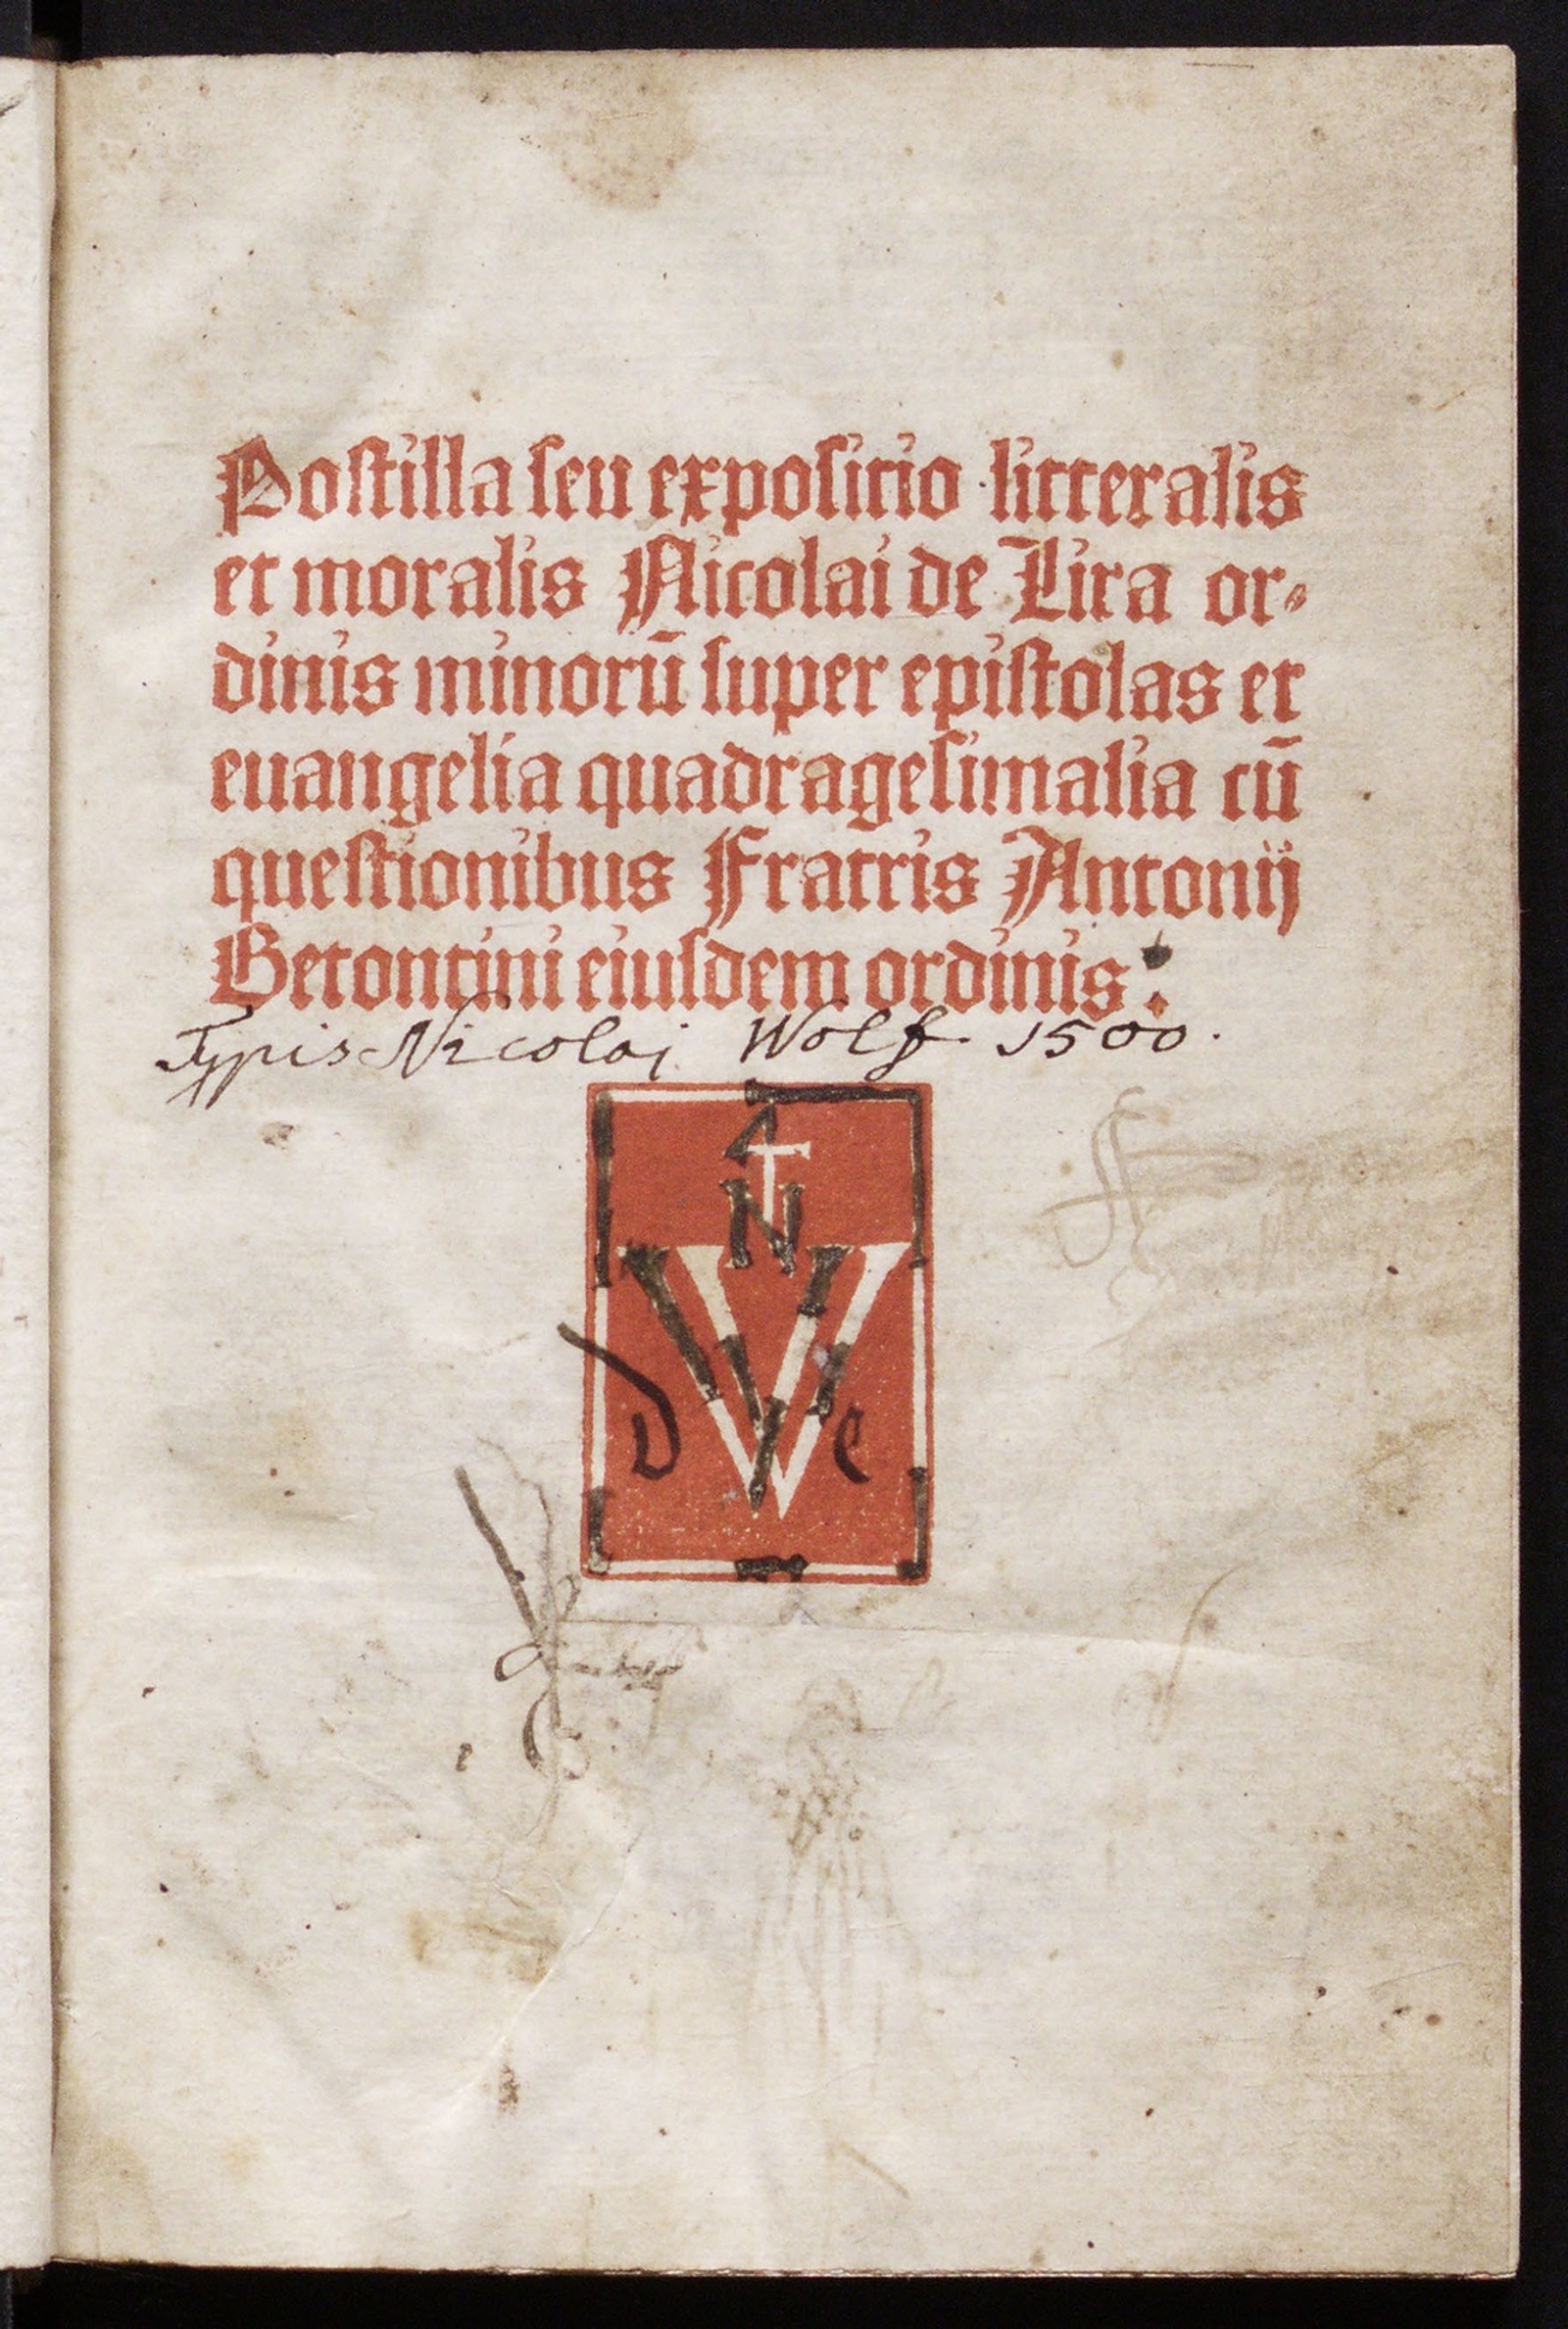 Postilla seu expositio litteralis
et moralis Nicolai de Lira or-
dinis minorū super epistolas et
euangelia quadragesimalia cū
questionibus Fratris Antonij
Betontini eiusdem ordinis:
Typis Nicolai Wolf 1500.
N
W
d e